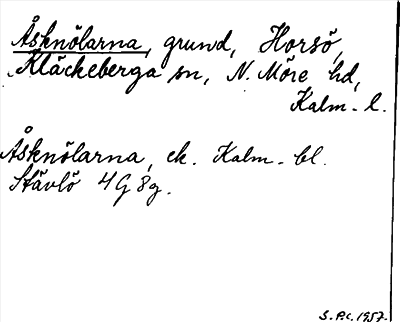 Åsknölarna, grund, Horsö,
Kläckeberga sn, N. Möre hd,
Kalm. l.
Åsknölarna, ek. Kalm. bl.
Stävlö 4G 8g.
S.P.C. 1957.